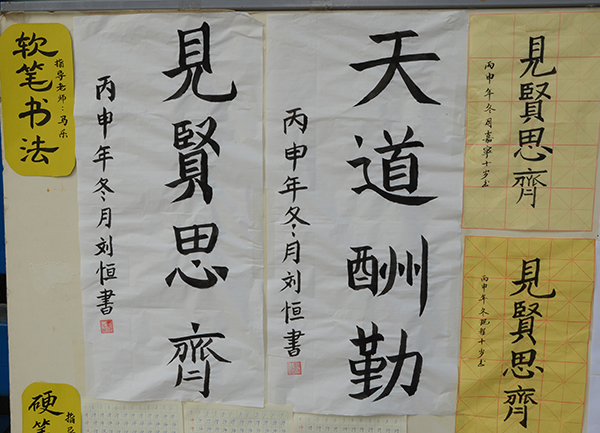 软笔书法
指导老师：马乐
見賢思齊
丙申年冬月刘恒書
天道酬勤
丙申年冬月刘恒書
見賢思齊
丙申年冬月嘉寧十岁书
見賢思齊
丙申年冬
十岁书
硬笔
指导